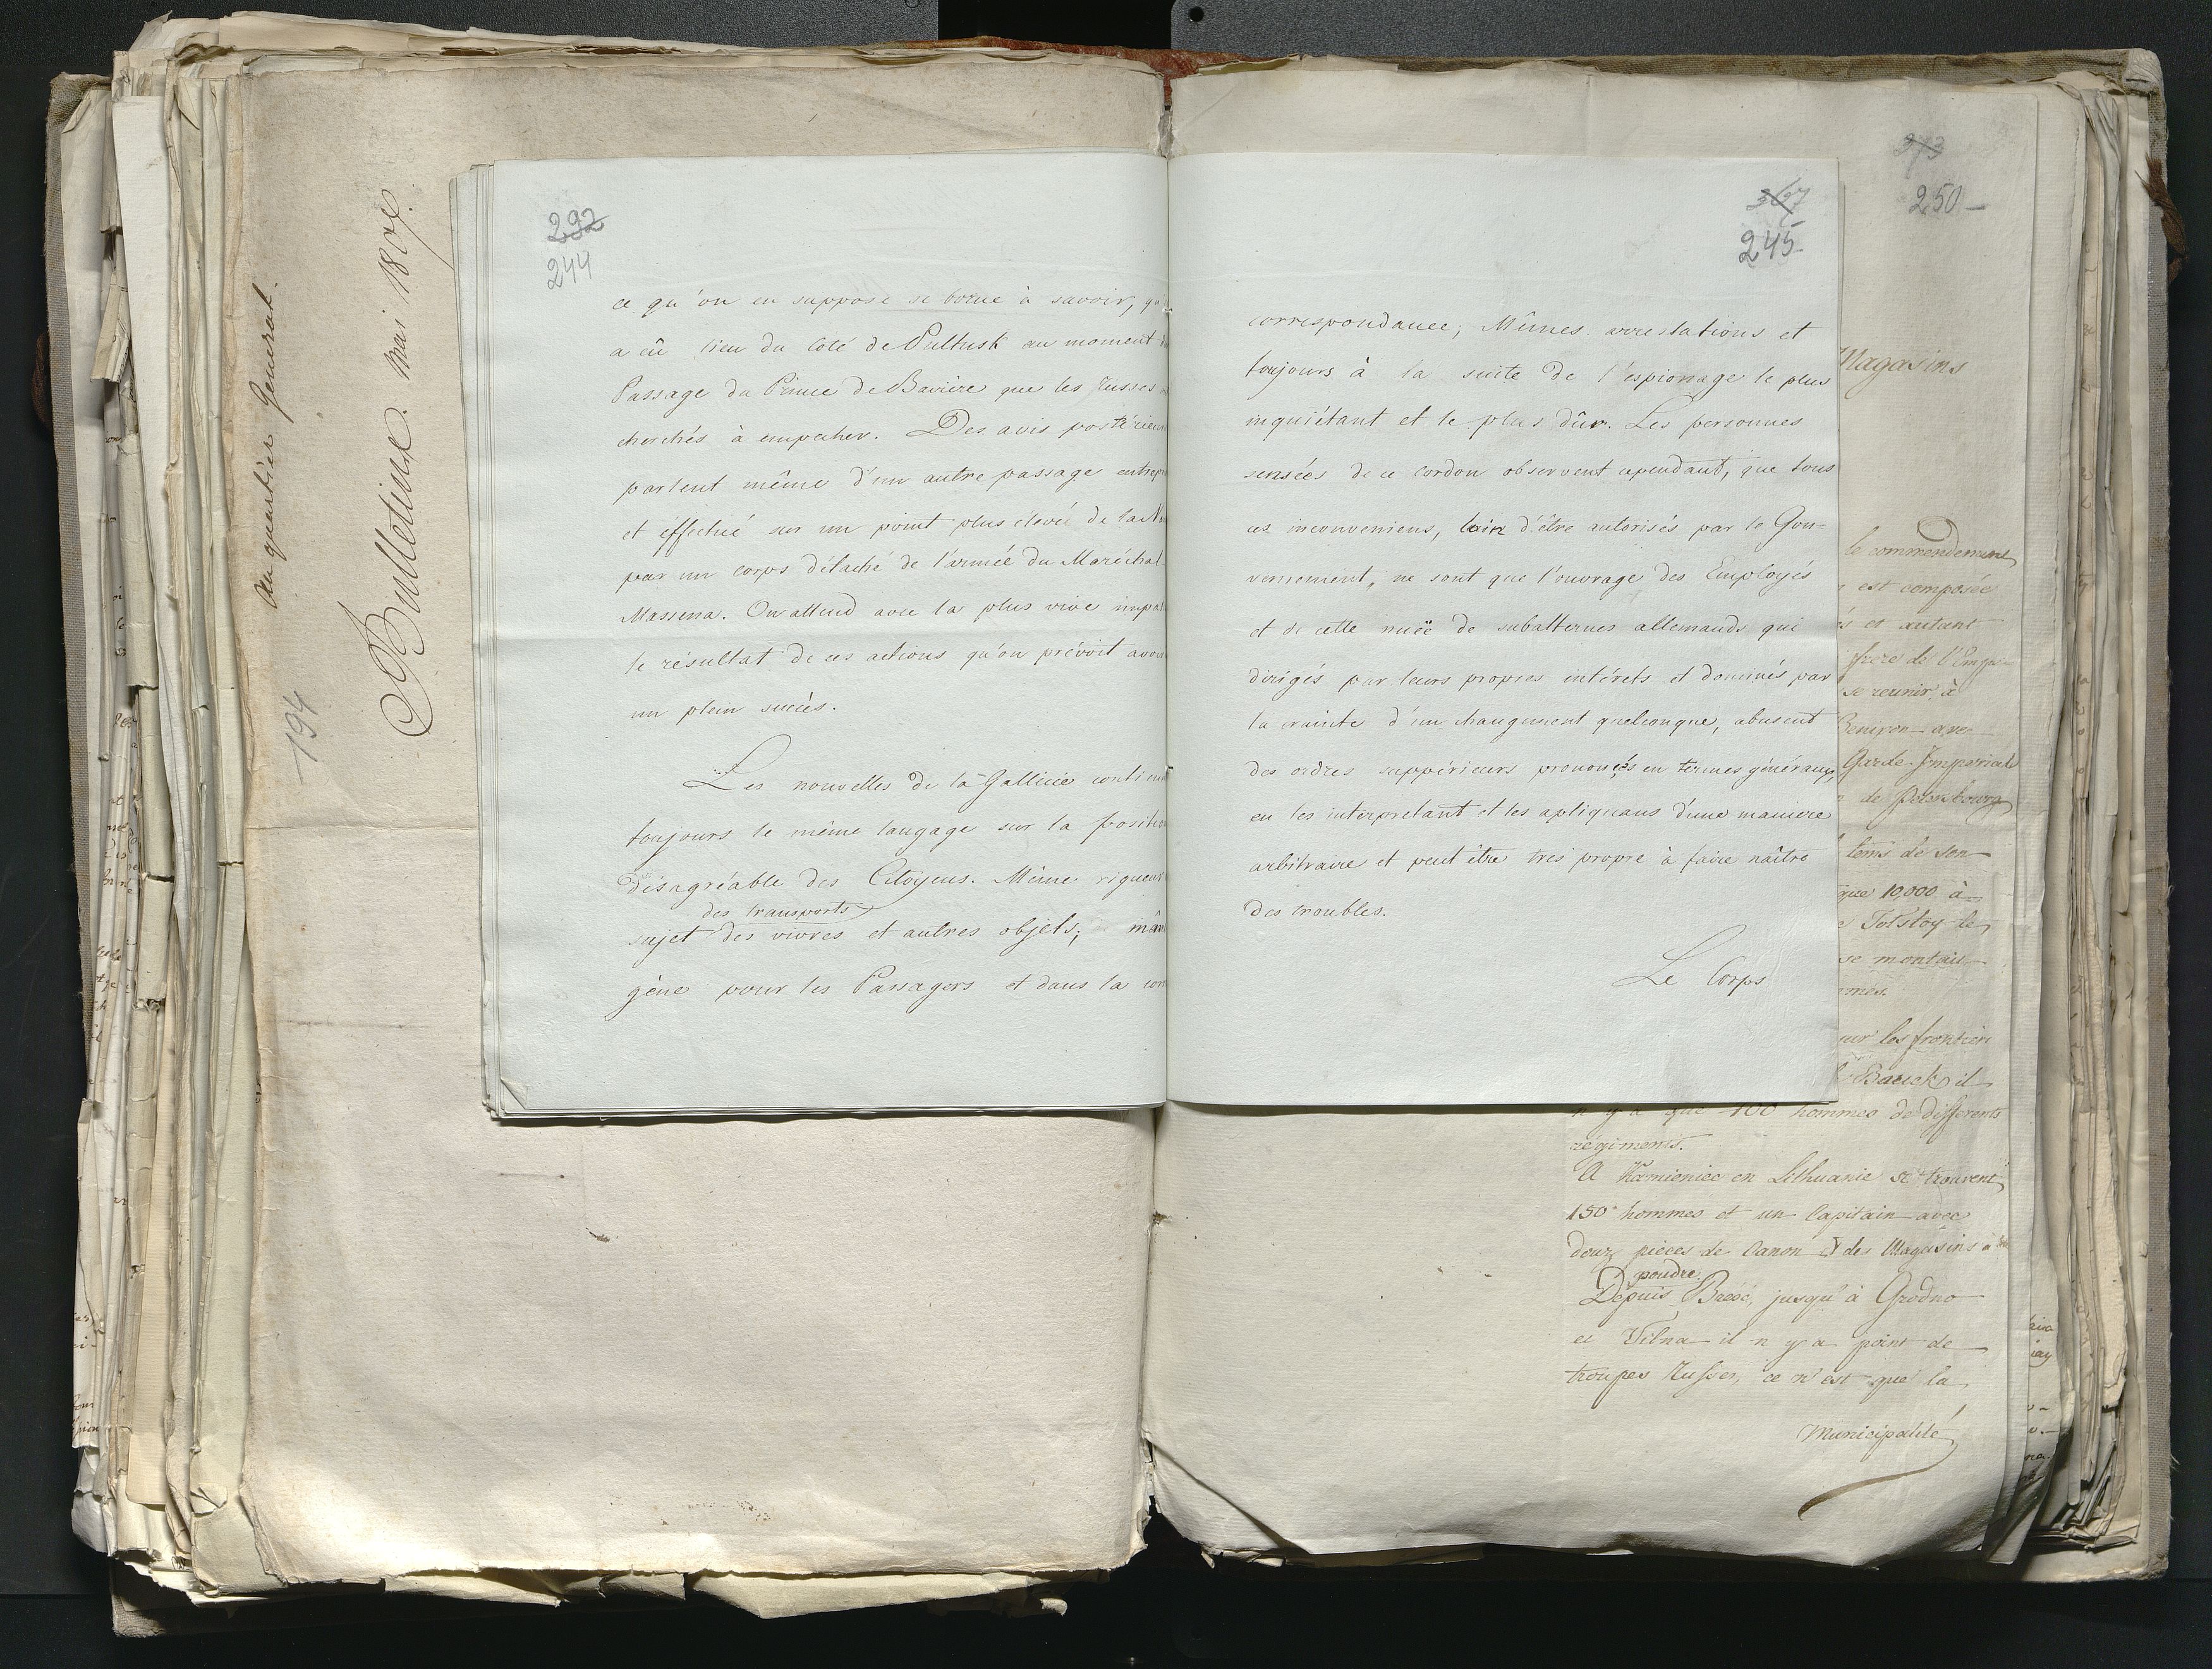 au quartier General.
Bulletins. Mai 1807.
194
292
244
ce qu'on en suppose se borne à savoir,
a eû lieu du coté de Pultusk au moment
Passage du Prince de Bavière que les Russes
cherchés à empecher. Des avis postérieu
parlent même d'un autre passage entrep
et éffectué sur un point plus élevé de la N
par un corps détaché de l'armée du Maréchal
Massena. On attend avec la plus vive impa
le résultat de ces actions qu'on prévoit avoi
un plein succès.
Les nouvelles de la Gallicie contien
toujours le même langage sur la positio
désagréable des Citoyens. Même rigueur
des transports
sujet des vivres et autres objets; mêm
gêne pour les Passagers et dans la cor
367
245
correspondance; Mêmes arrestations et
toujours à la suite de l'espionnage le plus
inquiétant et le plus dûr. Les personnes
sensées de ce cordon observent cependant, que tous
ces inconveniens, loin d'être autorisés par le Gou=
vernement, ne sont que l'ouvrage des Employés
et de cette nuëe de subalternes allemands qui
dirigés par leurs propres intérets et dominés par
la crainte d'un changement quelconque, abusent
des ordres suppérieurs prononcés en termes généraux,
en les interpretant et les apliquans d'une maniere
arbitraire et peut être tres propre à faire naître
des troubles.
Le Corps
273
250
Magasins
le commendement
est composée
s et autant
frere de l'Emp
se reunir à
Garde Imperiale
de Petersbourg
tems de son
que 10,000 à
Tolstoy le
se montait
mmes.
sur les frontier
il
n'y a que 100 hommes de differents
régiments.
A Kamieniec en Lithuanie se trouvent
150 hommes et un Capitain avec
deux pieces de Canon & des Magasins à
poudre.
Depuis Brześć, jusqu'à Grodno
et Vilna il n y a point de
troupes Russes, ce n'est que la
Municipalité